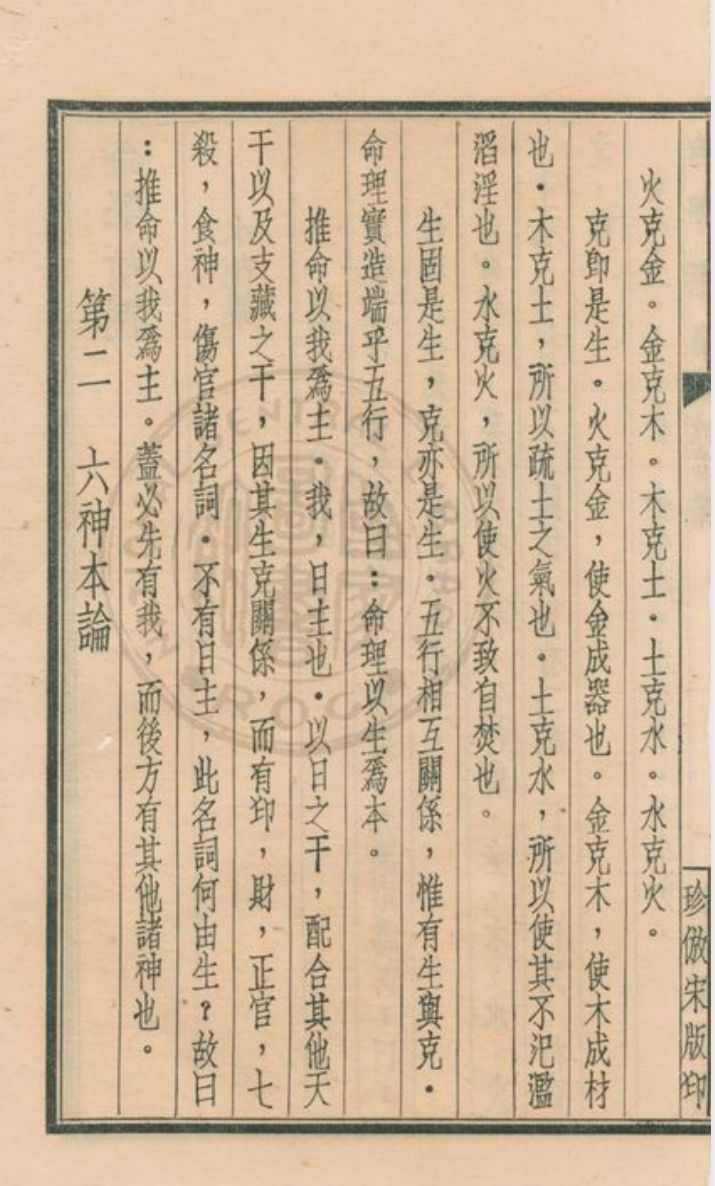 珍倣宋版印
火克金。金克木。木克土。土克水。水克火。
克卽是生。火克金，使金成器也。金克木，使木成材
也。木克土，所以疏土之氣也。土克水，所以使其不汜濫
滔淫也。水克火，所以使火不致自焚也。
生固是生，克亦是生。五行相互關係，惟有生與克。
命理實造端乎五行，故曰：命理以生爲本。
推命以我爲主。我，日主也。以日之干，配合其他天
干以及支藏之干，因其生克關係，而有印，財，正官，七
殺，食神，傷官諸名詞。不有日主，此名詞何由生？故曰
：推命以我爲主。蓋必先有我，而後方有其他諸神也。
第二　六神本論